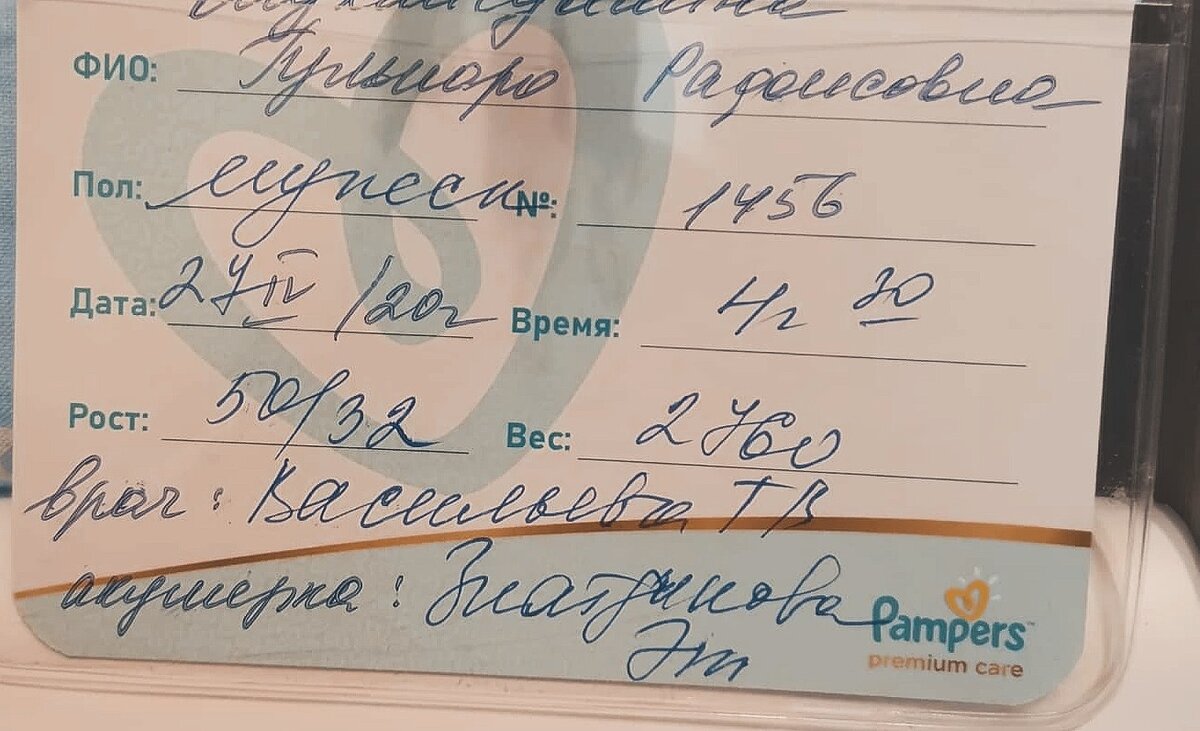 ФИО: Гульнара Радисовна
Пол: мужеск №: 1456
Дата: 27 IV /20г Время: 4г 30
Рост: 50/32 Вес: 2760
врач: Васильева ТВ
акушерка: Зиатдинова
Pampers
premium care